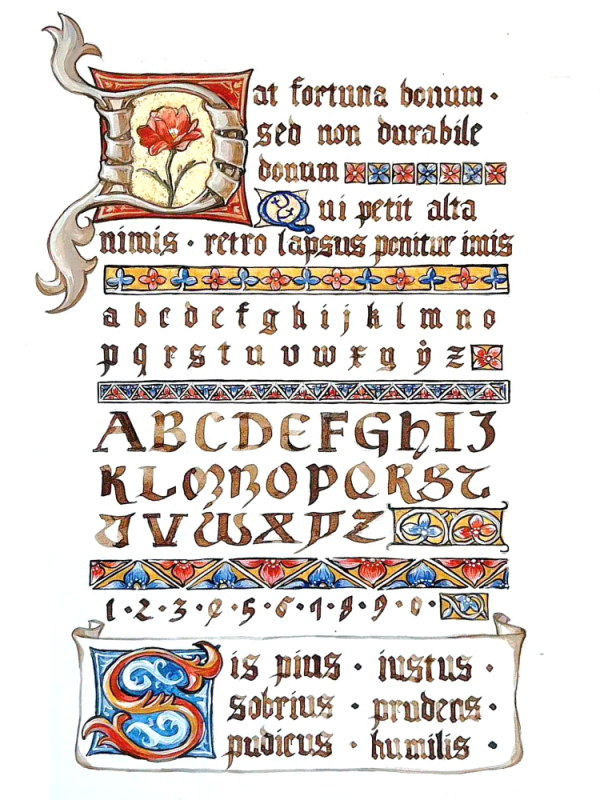 Dat fortuna bonum ·
sed non durabile
donum
Qui petit alta
nimis · retro lapsus ponitur imis
a b c d e f g h i j k l m n o
p q r s t u v w x y ẏ z
A B C D E F G h I J
K L M N O P Q R S T
U V W X Y Z
1 · 2 · 3 · 4 · 5 · 6 · 7 · 8 · 9 · 0 ·
Sis pius · iustus ·
sobrius · prudens ·
pudicus · humilis ·